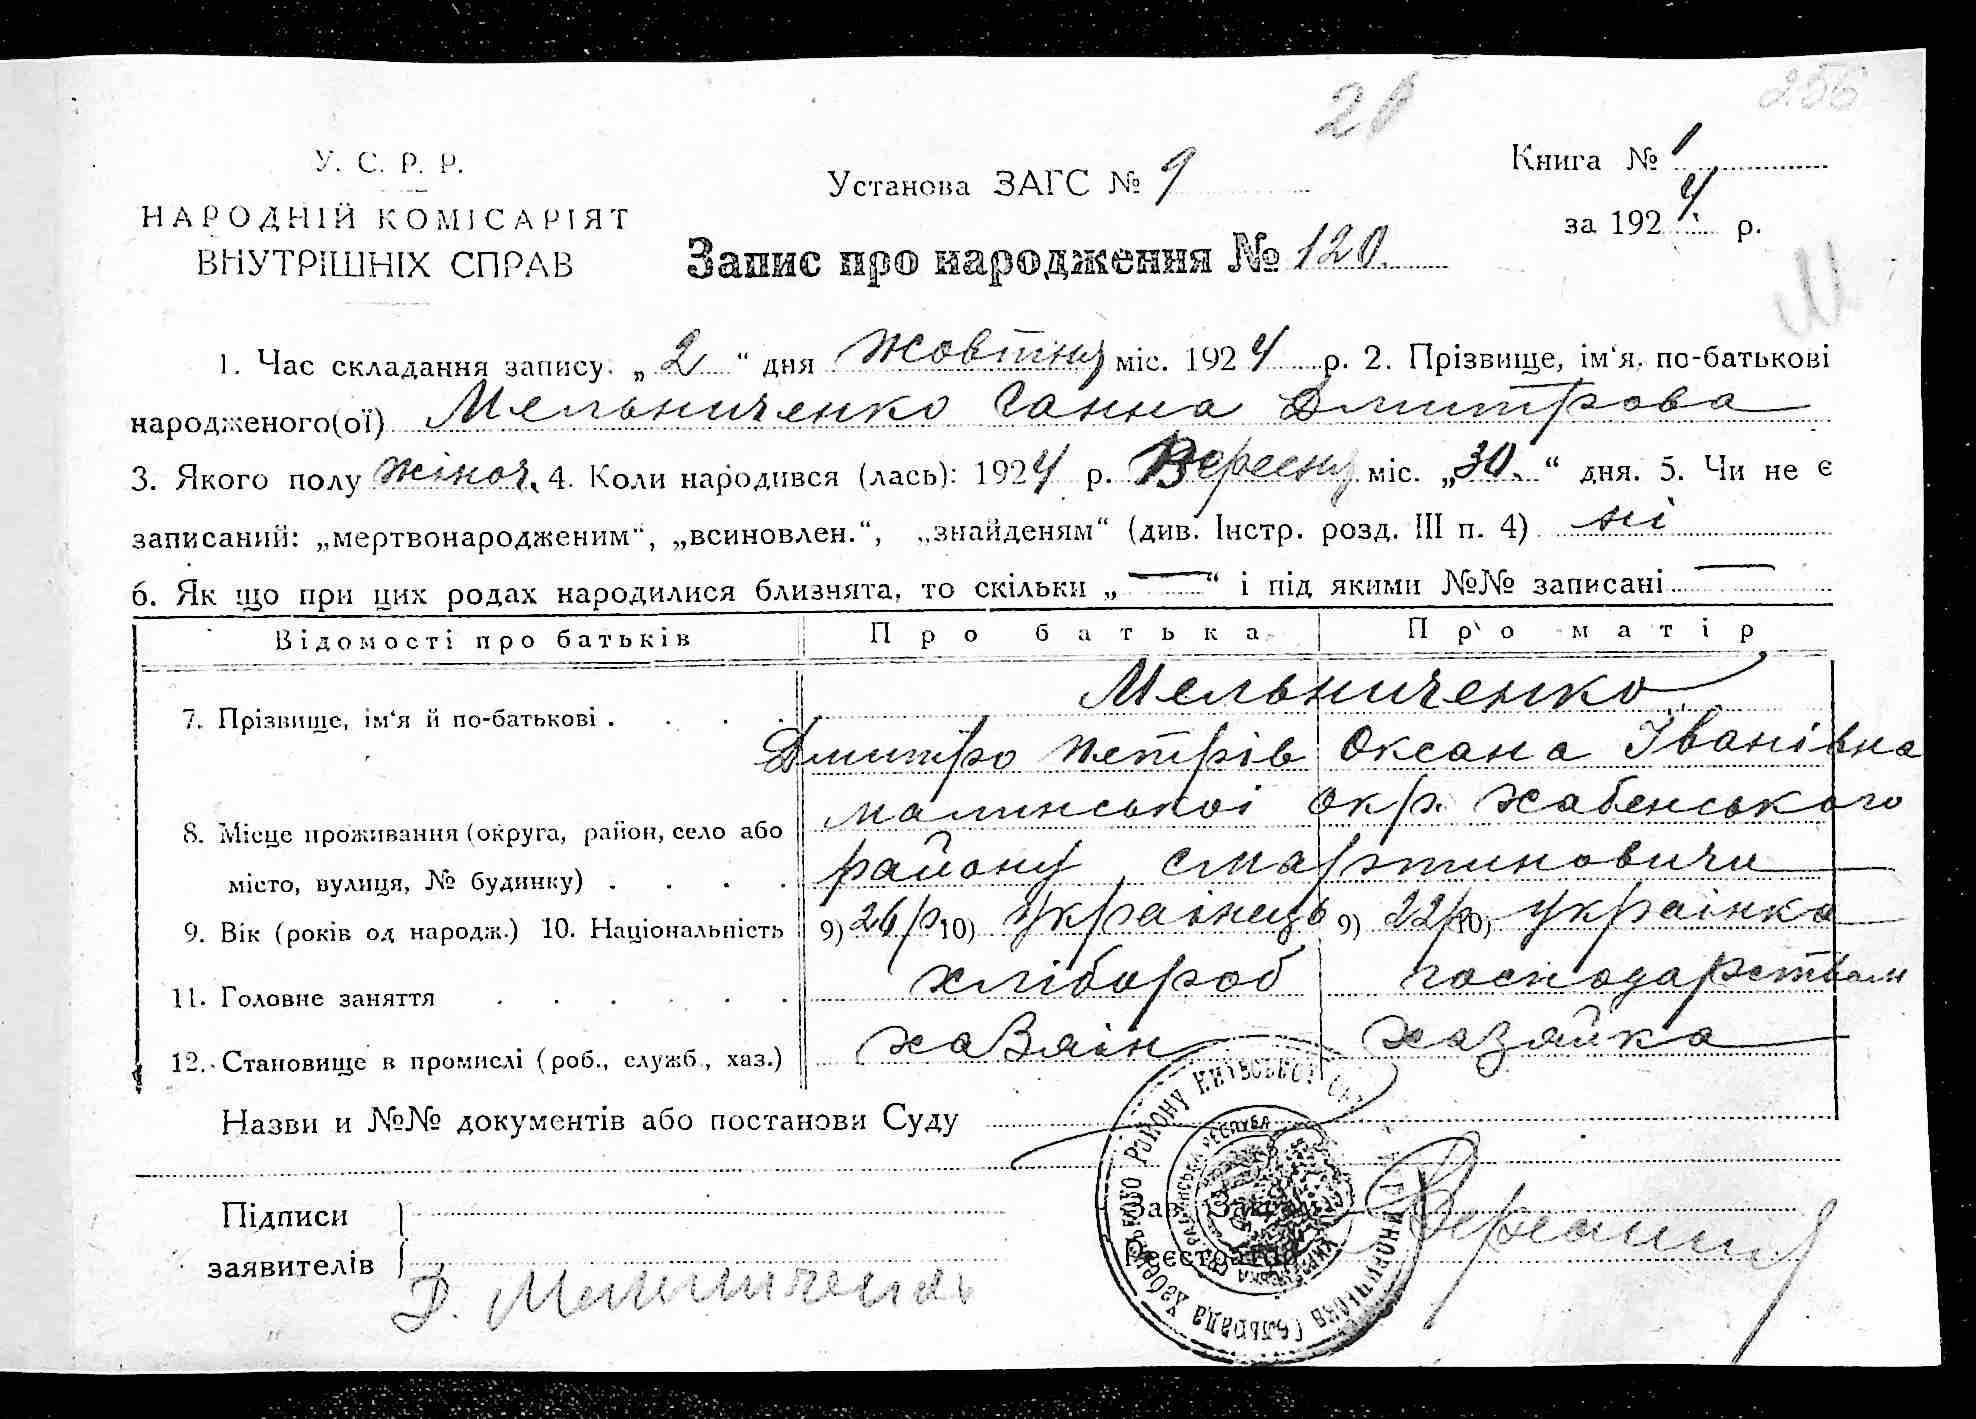 256
20
У. С. Р. Р.
НАРОДНІЙ КОМІСАРІЯТ
ВНУТРІШНІХ СПРАВ
Установа ЗАГС № 9
Книга № 1
за 1924 р.
Запис про народження № 120.
1. Час складання запису: „2“ дня Жовтня міс. 1924 р. 2. Прізвище, ім‘я, по-батькові
народженого(ої) Мельниченко Ганна Дмитрова
3. Якого полу жіноч. 4. Коли народився (лась): 1924 р. Вересня міс. „30.“ дня. 5. Чи не є
записаний: „мертвонародженим“, „всиновлен.“, „знайденям“ (див. Інстр. розд. III п. 4) ні
6. Як що при цих родах народилися близнята, то скільки „—“ і під якими №№ записані —
Відомості про батьків Про батька Про матір
7. Прізвище, ім‘я й по-батькові . . . . Мельниченко
Дмитро Петрів Оксана Іванівна
8. Місце проживання (округа, район, село або малинської окр. Хабенського
місто, вулиця, № будинку) . . . . району, с Мартиновичи
9. Вік (років од народж.) 10. Національність 9) 26 р 10) українець 9) 22 р 10) українка
11. Головне заняття . . . . . . хлібороб господарством
12. Становище в промислі (роб., служб., хаз.) хазяін хазяйка
Назви и №№ документів або постанови Суду
Підписи
заявителів
Д. Мельниченко
Зав. Загсом
Реєстратор